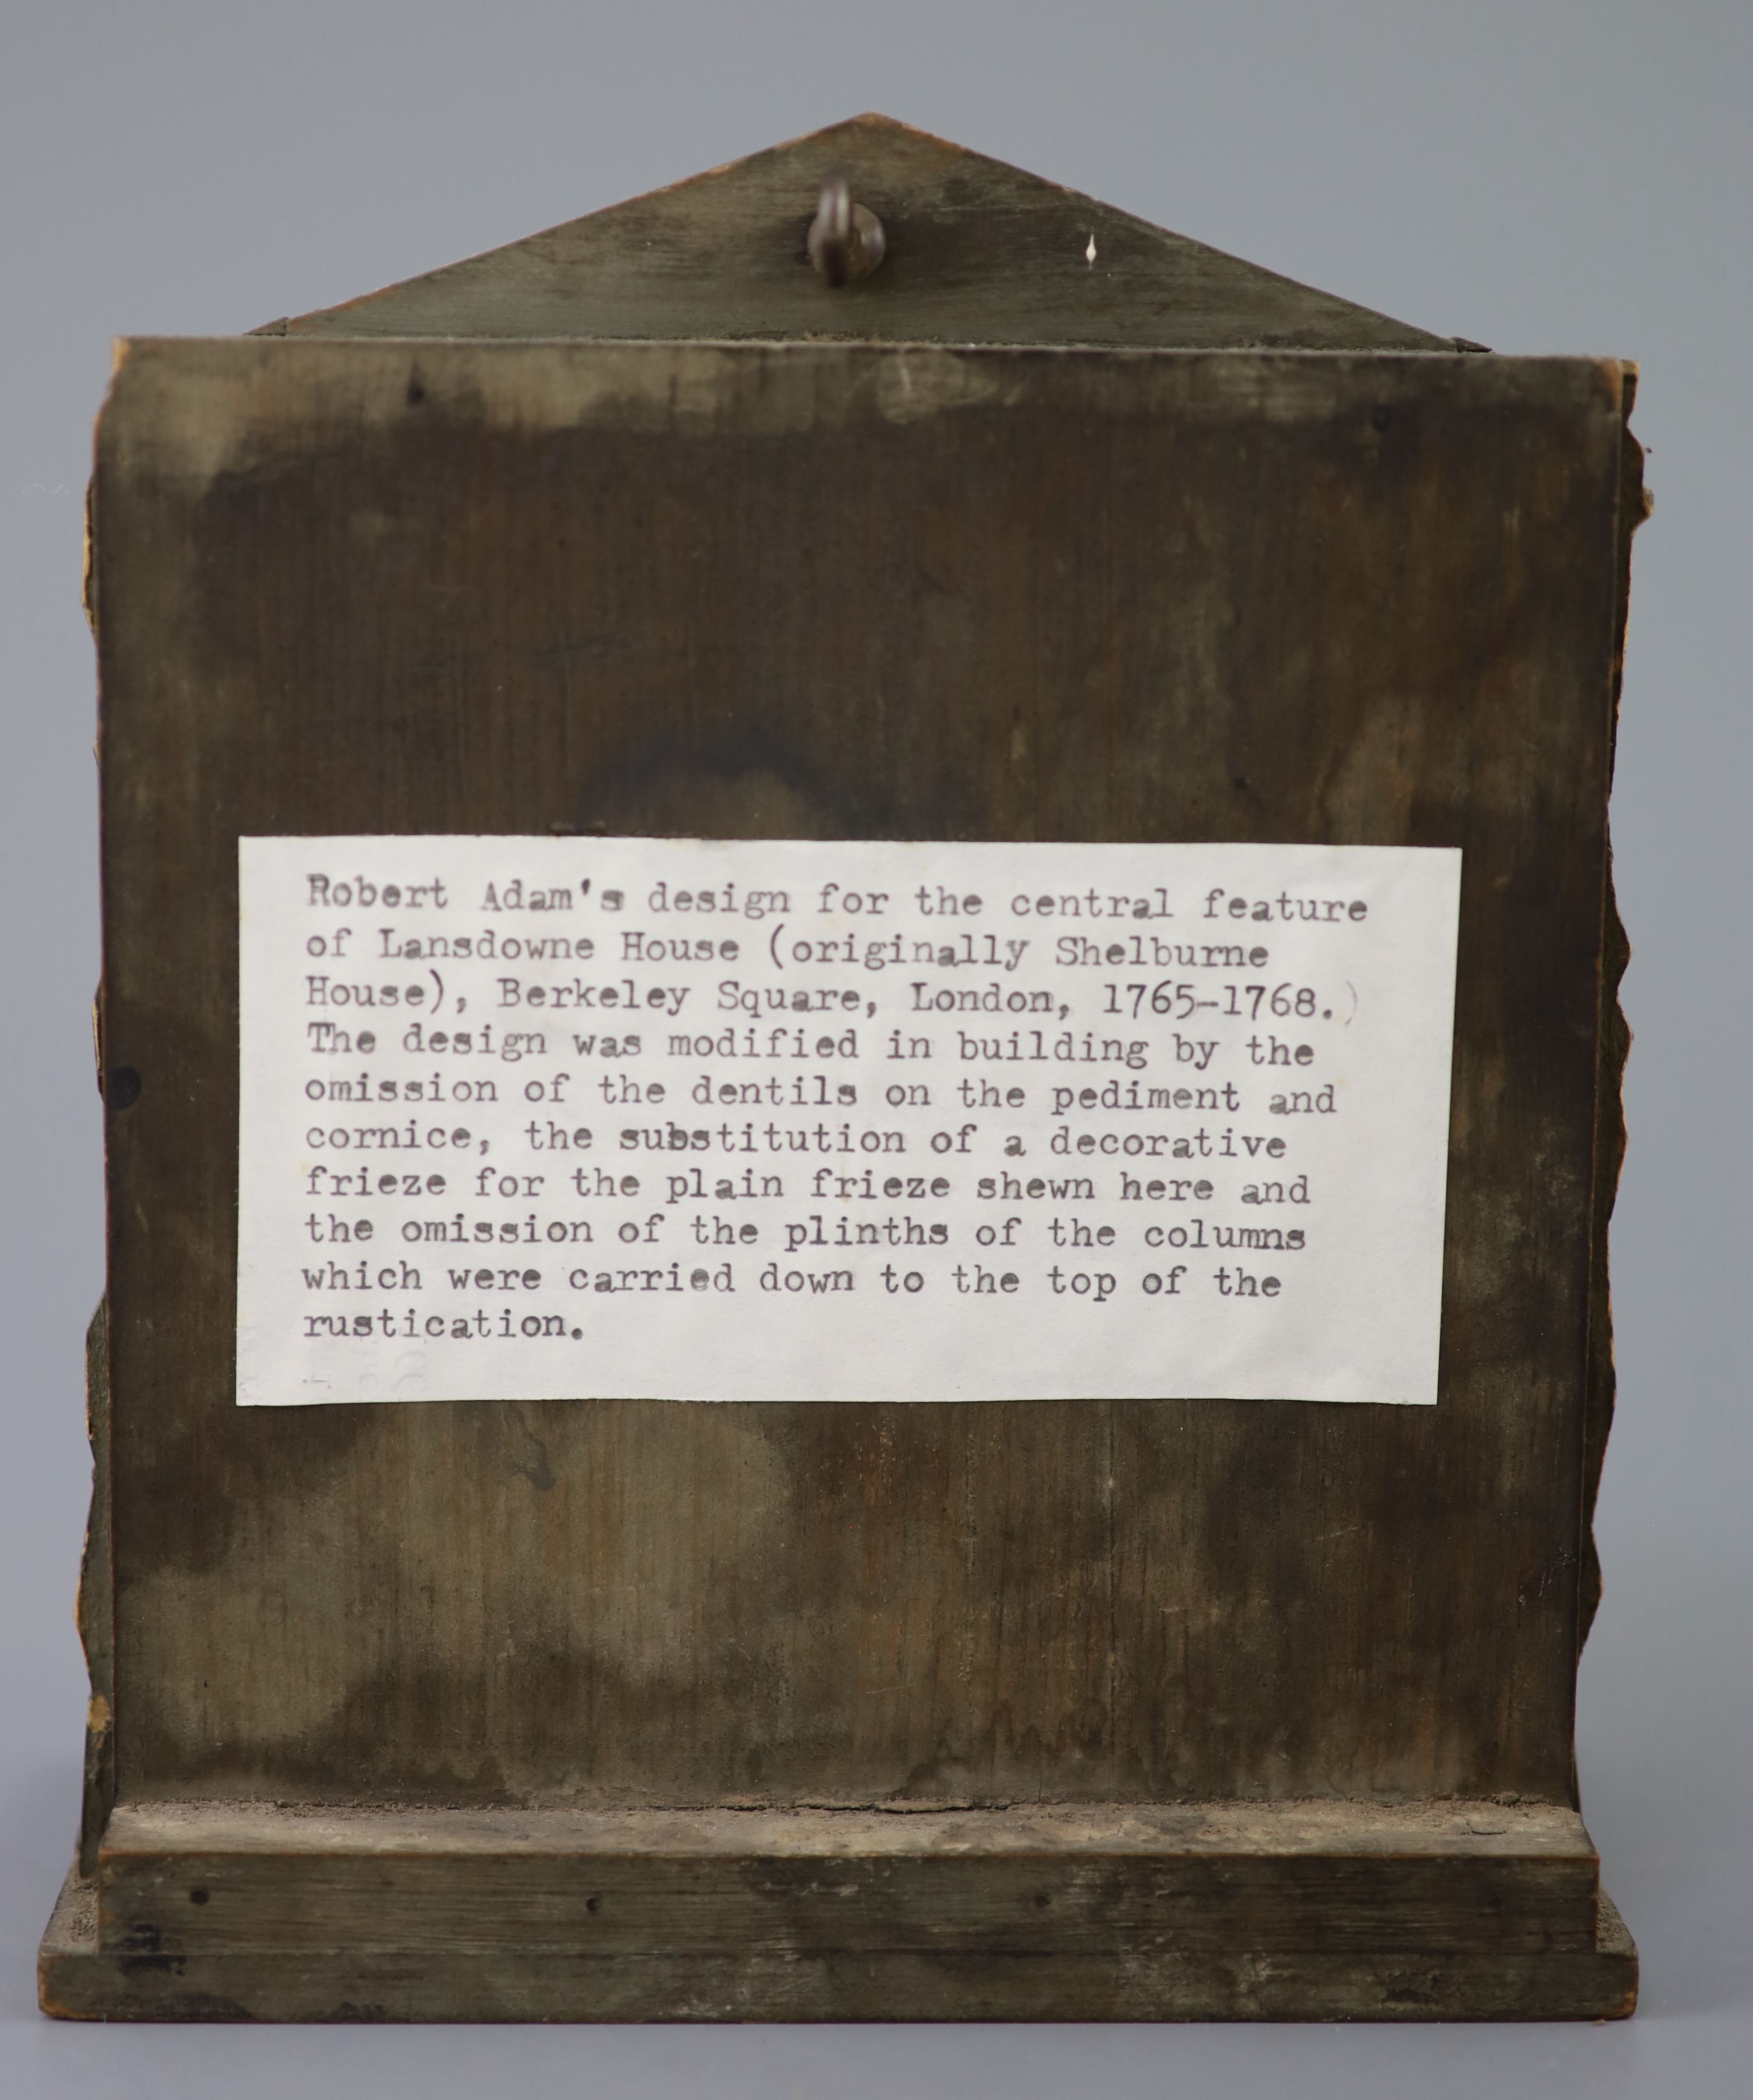 Robert Adam's design for the central feature
of Lansdowne House (originally Shelburne
House), Berkeley Square, London, 1765-1768.)
The design was modified in building by the
omission of the dentils on the pediment and
cornice, the substitution of a decorative
frieze for the plain frieze shewn here and
the omission of the plinths of the columns
which were carried down to the top of the
rustication.